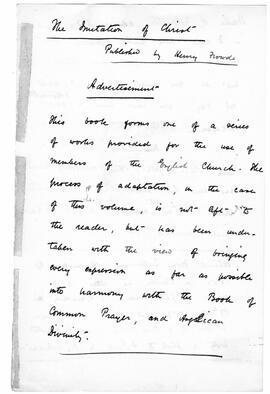 The Imitation of Christ
Published by Henry Frowde
Advertisement
This book forms one of a series
of works provided for the use of
members of the English Church. The
process of adaptation, in the case
of this volume, is not left to
the reader, but has been under-
taken with the view of bringing
every expression as far as possible
into harmony with the Book of
Common Prayer, and Anglican
Divinity.